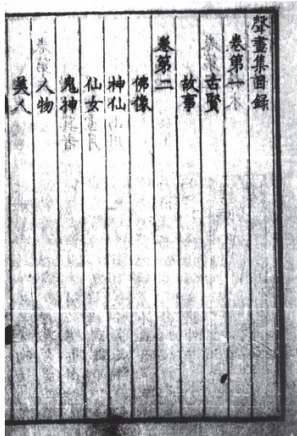 聲畫集目錄
卷第一
古賢
故事
卷第二
佛像
神仙
仙女
鬼神
人物
美人